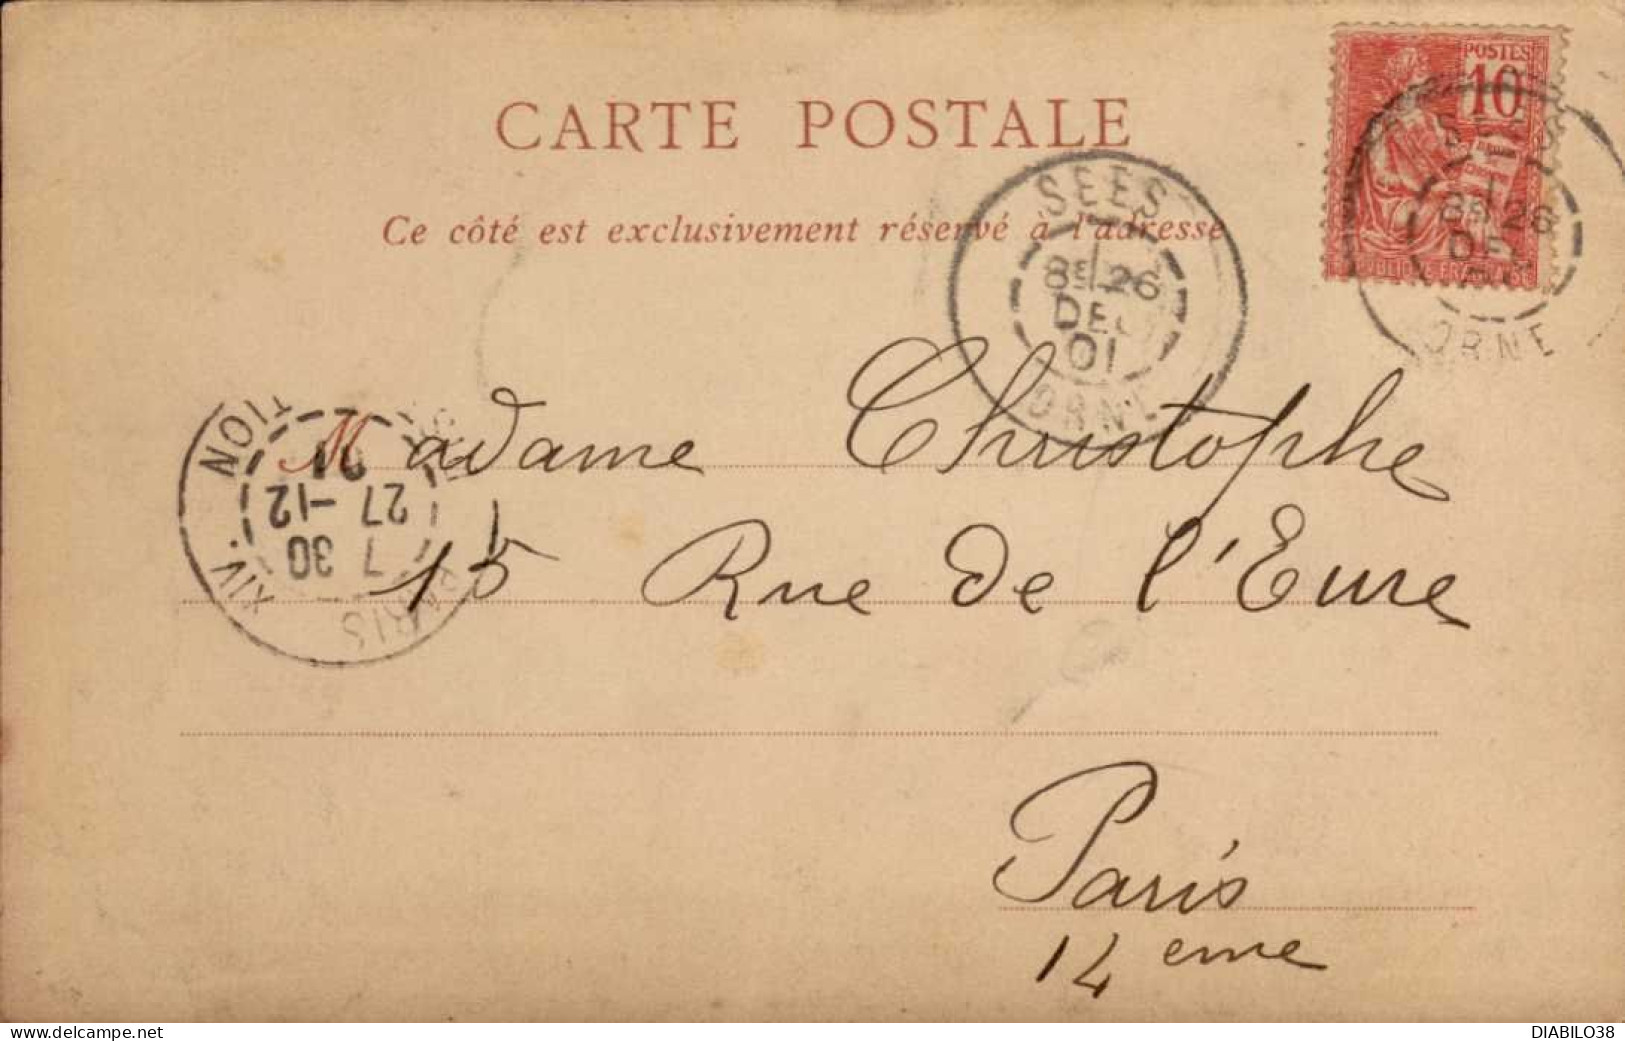 CARTE POSTALE
Ce côté est exclusivement réservé à l'adresse
POSTES
10
SEES
8E 26
DEC
01
ORNE
SEES
8E 26
DE
ORNE
Madame Christophe
15 Rue de l'Eure
Paris
14eme
PARIS XIV.
7 30
27-12
01
DIABILO38